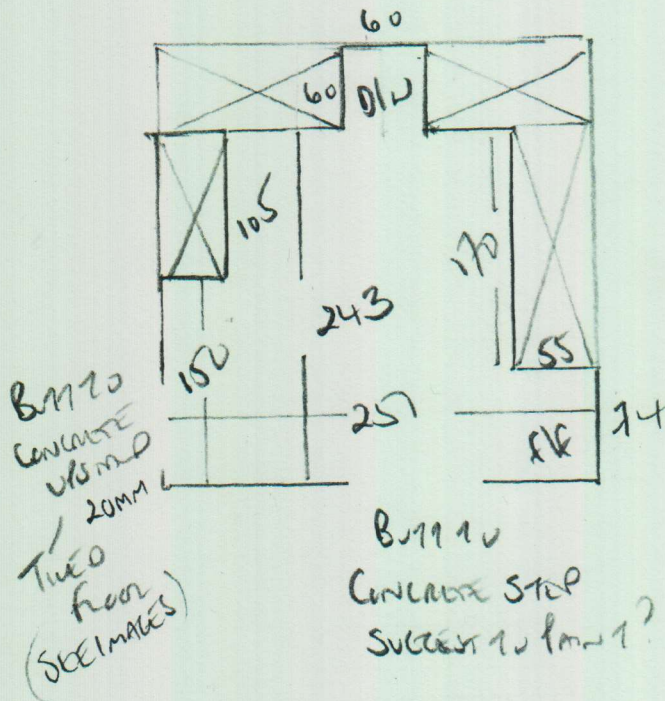 60
60 D/W
105
170
243
150
55
257
74
F/F
BUTT TO
CONCRETE
UPSTAND
20MM
TILED
FLOOR
(SEE IMAGES)
BUTT TO
CONCRETE STEP
SUGGEST TO PAINT?